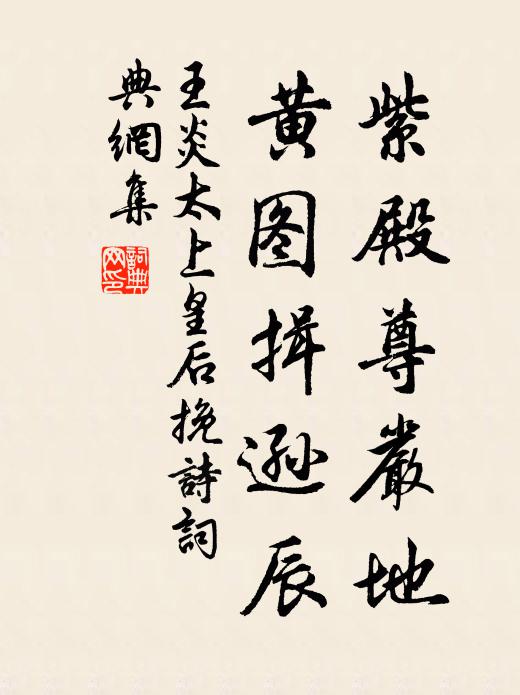 紫殿尊嚴地
黄图揖遜辰
王炎太上皇后挽詩詞
典網集
詞典
网印